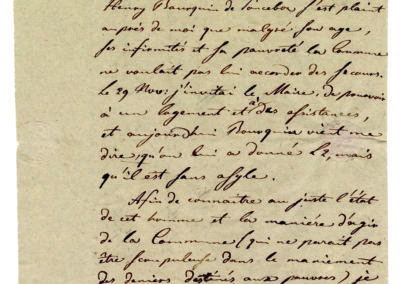 Henry Bourquin de Soncebos s'est plaint
auprès de moi que malgré son age,
ses infirmités et sa pauvreté la Commune
ne voulait pas lui accorder des secours.
Le 29 Nov: j'invitai le Maire, de pourvoir
à un logement et à des assistances,
et aujourdhui Bourquin vient me
dire, qu'on lui a donné L2, mais
qu'il est sans asyle.
Afin de connaitre au juste l'état
de cet homme et la maniére d'agir
de la Commune (qui ne parait pas
être scrupuleuse dans le maniement
des deniers destinés aux pauvres) je